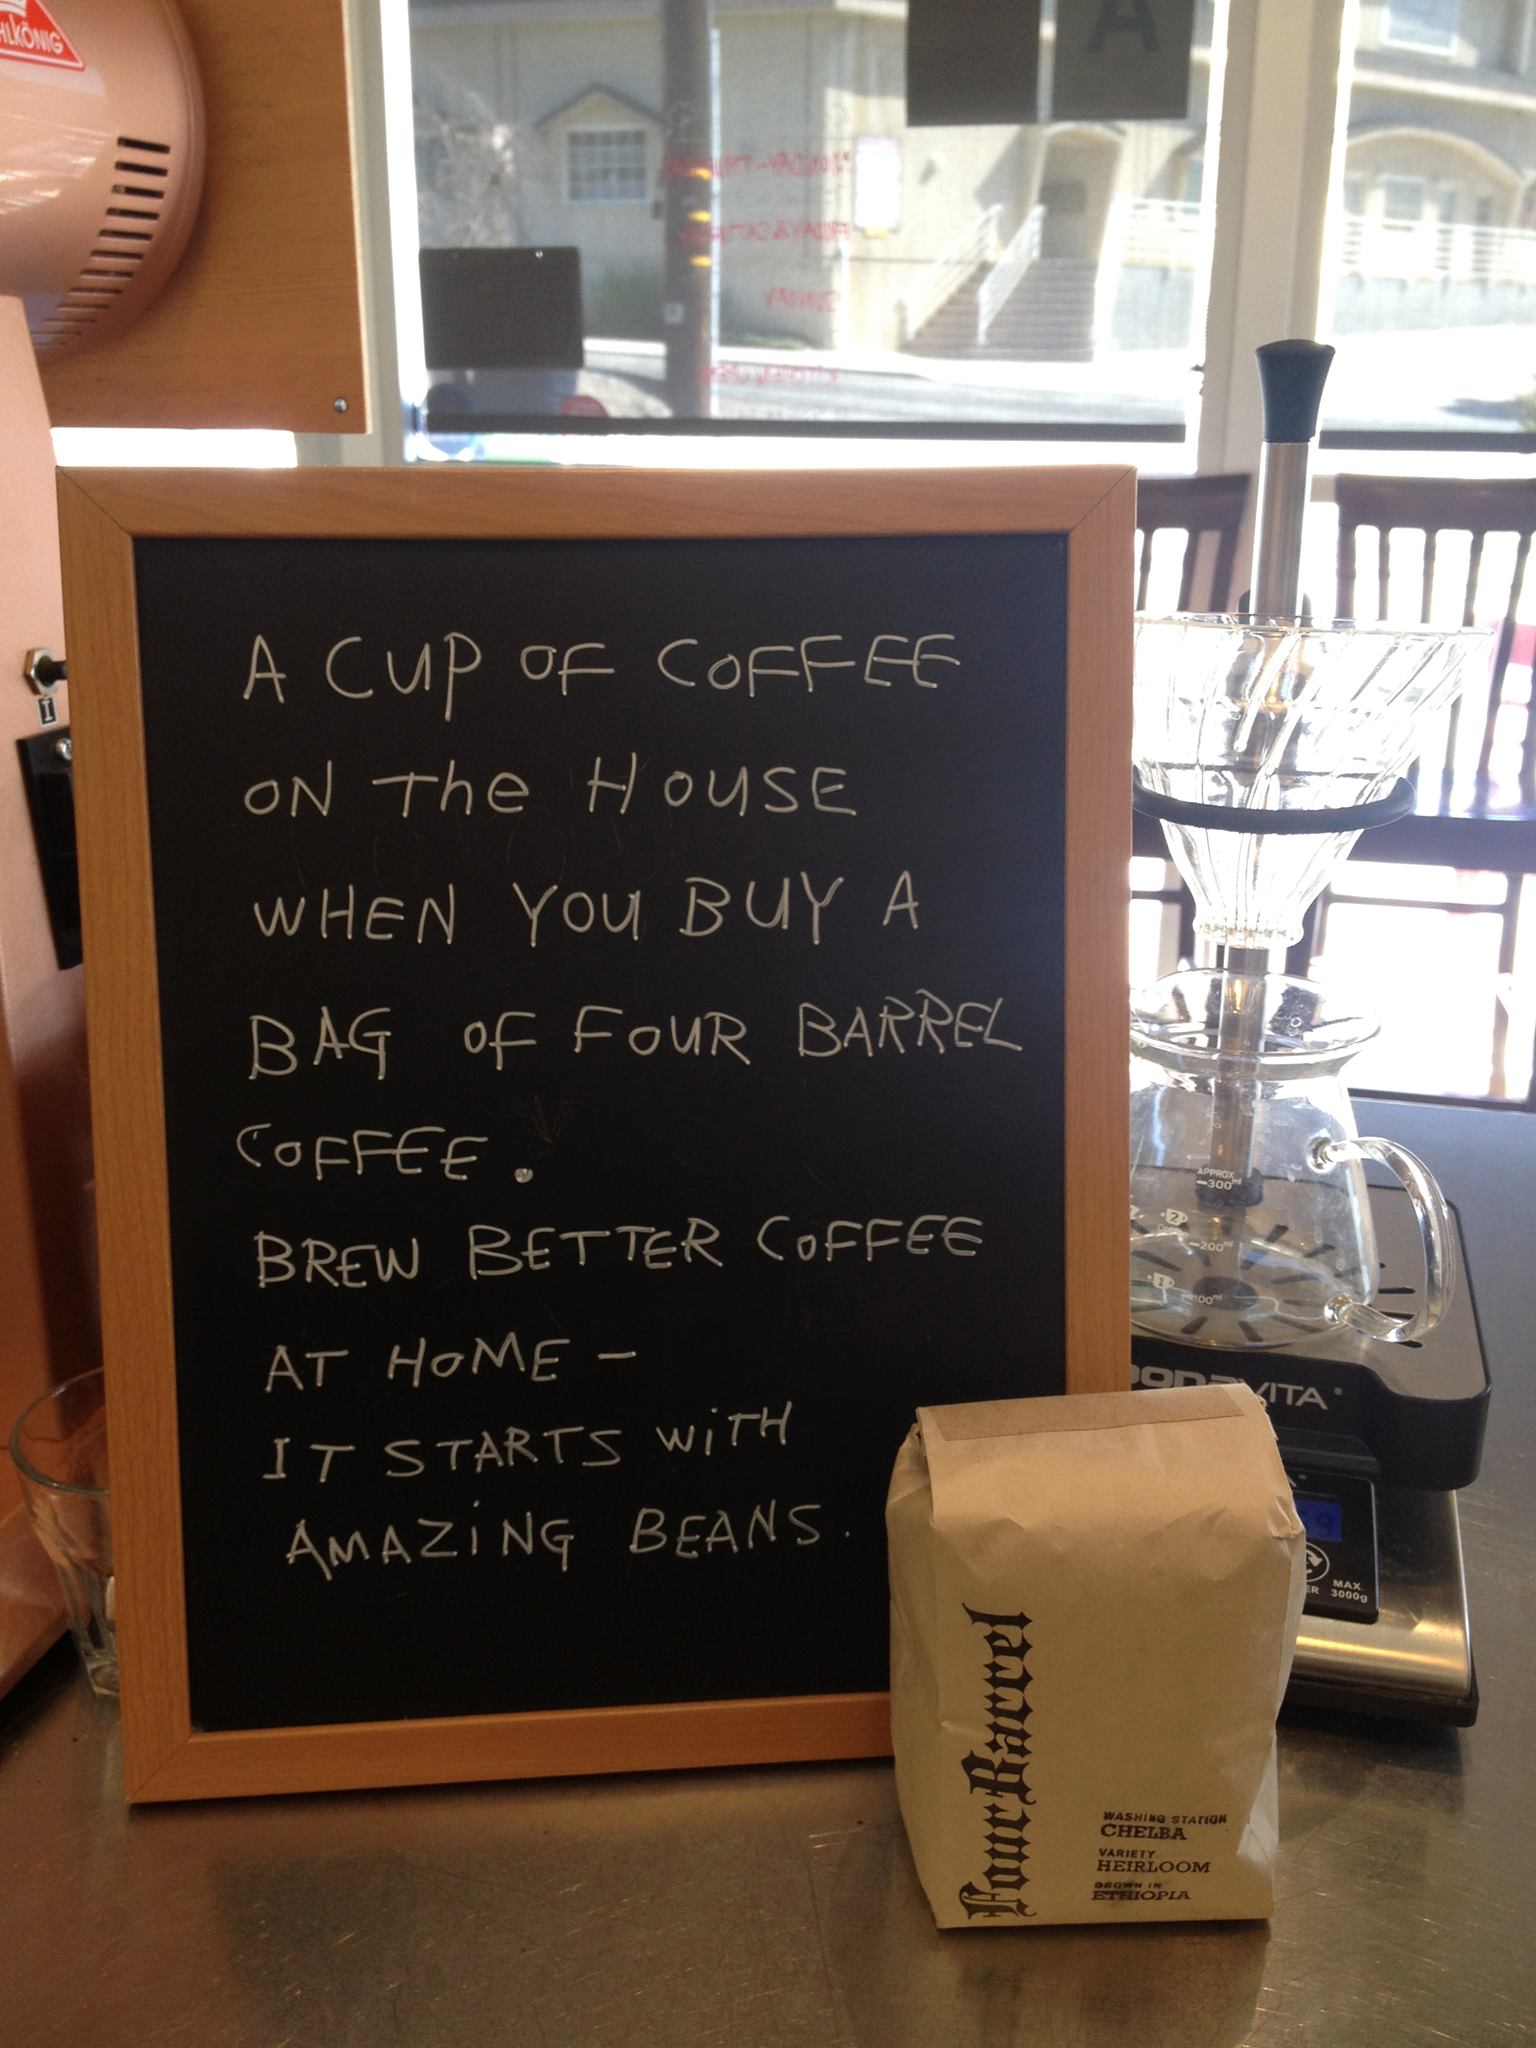 HLKÖNIG
A
MONDAY-THURSDAY
FRIDAY & SATURDAY
SUNDAY
KITCHEN
A CUP OF COFFEE
ON The HOUSE
WHEN YOU BUY A
BAG OF FOUR BARREL
COFFEE.
BREW BETTER COFFEE
AT HOME -
IT STARTS WiTH
AMAZiNG BEANS.
I
APPROX
300ml
2
200ml
1
100ml
BONAVITA
MAX.
3000g
FourBarrel
WASHING STATION
CHELBA
VARIETY
HEIRLOOM
GROWN IN
ETHIOPIA